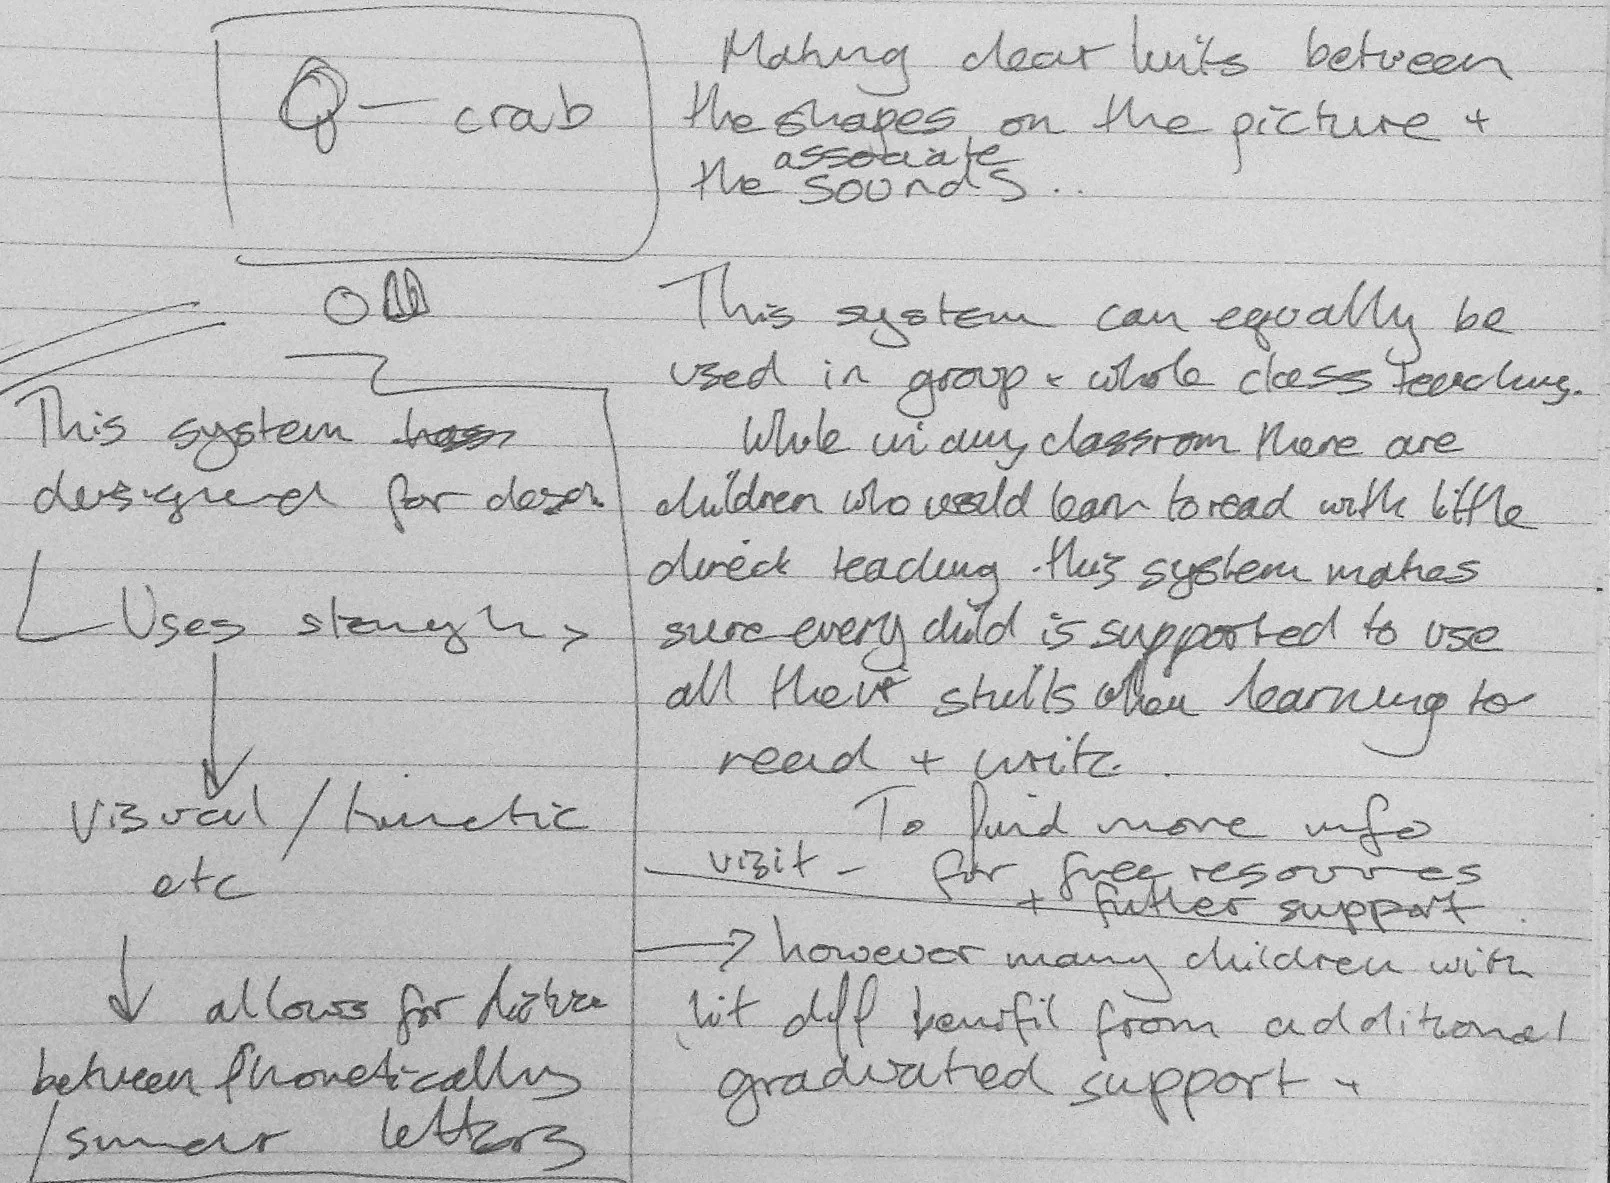 Q — crab
Making clear links between
the shapes on the picture +
the associate sounds ..
This system
designed for
Uses
visual / kinetic
etc
allows for
between phonetically
/ similar letters
This system can equally be
used in group + whole class teaching.
While in any classrom there are
children who would learn to read with little
direct teaching . this system makes
sure every child is supported to use
all their skills when learning to
read + write .
To find more info
visit – for free resources
+ futher support .
→ however many children with
lit diff benifit from additional
graduated support +